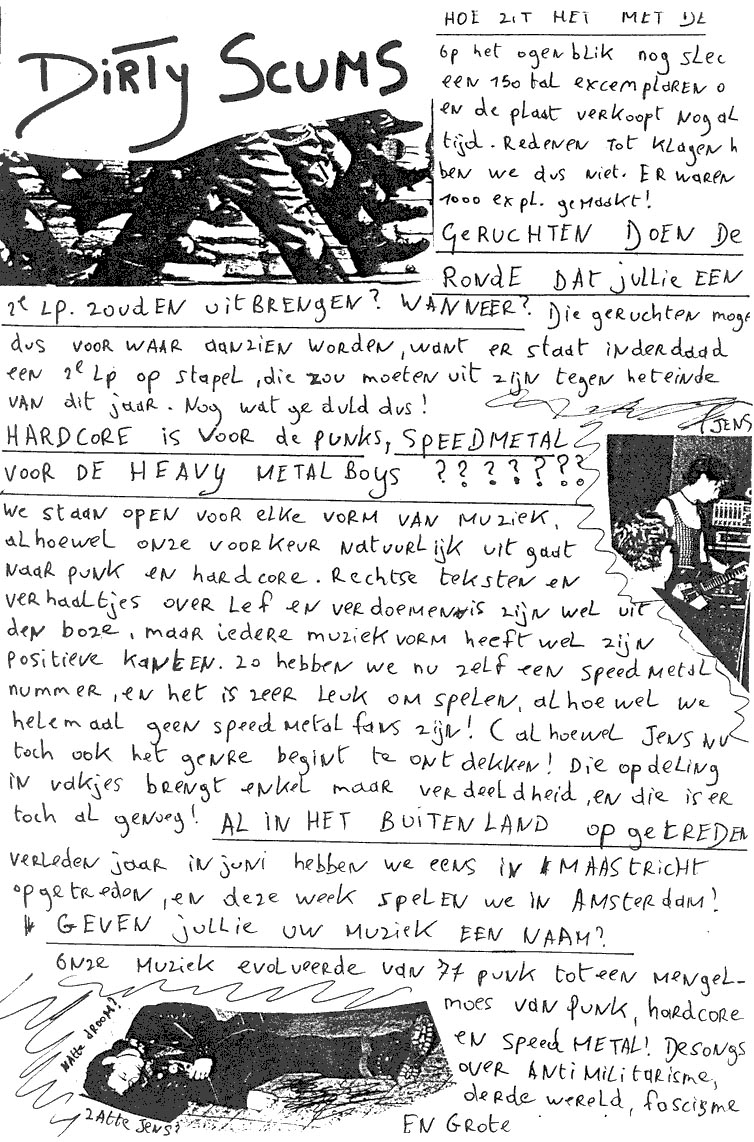 DIRTY SCUMS
HOE ZIT HET MET DE
Op het ogenblik nog slec
een 150 tal excemplaren o
en de plaat verkoopt nog al
tijd. Redenen tot klagen h
ben we dus niet. Er waren
1000 expl. gemaakt!
GERUCHTEN DOEN DE
RONDE DAT jullie EEN
2e LP. ZOUDEN uitBRENGEN? WANNEER? Die geruchten moge
dus voor waar aanzien worden, want er staat inderdaad
een 2e LP op stapel, die zou moeten uit zijn tegen heteinde
van dit jaar. Nog wat geduld dus!
(JENS
HARDCORE is voor de punks, SPEEDMETAL
VOOR DE HEAVY METAL BOYS ???????
We staan open voor elke vorm van muziek,
alhoewel onze voorkeur natuurlijk uit gaat
naar punk en hardcore. Rechtse teksten en
verhaaltjes over lef en verdoemenis zijn wel uit
den boze, maar iedere muziekvorm heeft wel zijn
positieve kanten. Zo hebben we nu zelf een speed metal
nummer, en het is zeer leuk om spelen, alhoewel we
helemaal geen speed metal fans zijn! (alhoewel Jens nu
toch ook het genre begint te ontdekken! Die opdeling
in vakjes brengt enkel maar verdeeldheid, en die is er
toch al genoeg! AL IN HET BUITENLAND opgetreden
Verleden jaar in juni hebben we eens in MAASTRICHT
opgetreden, en deze week spelen we in AMSterdam!
GEVEN jullie UW MUZIEK EEN NAAM?
Onze muziek evolueerde van '77 punk tot een mengel-
moes van punk, hardcore
en speed METAL! De songs
over AntiMilitarisme,
derde wereld, fascisme
EN Grote
NAtte droom?
ZAtte JENS?